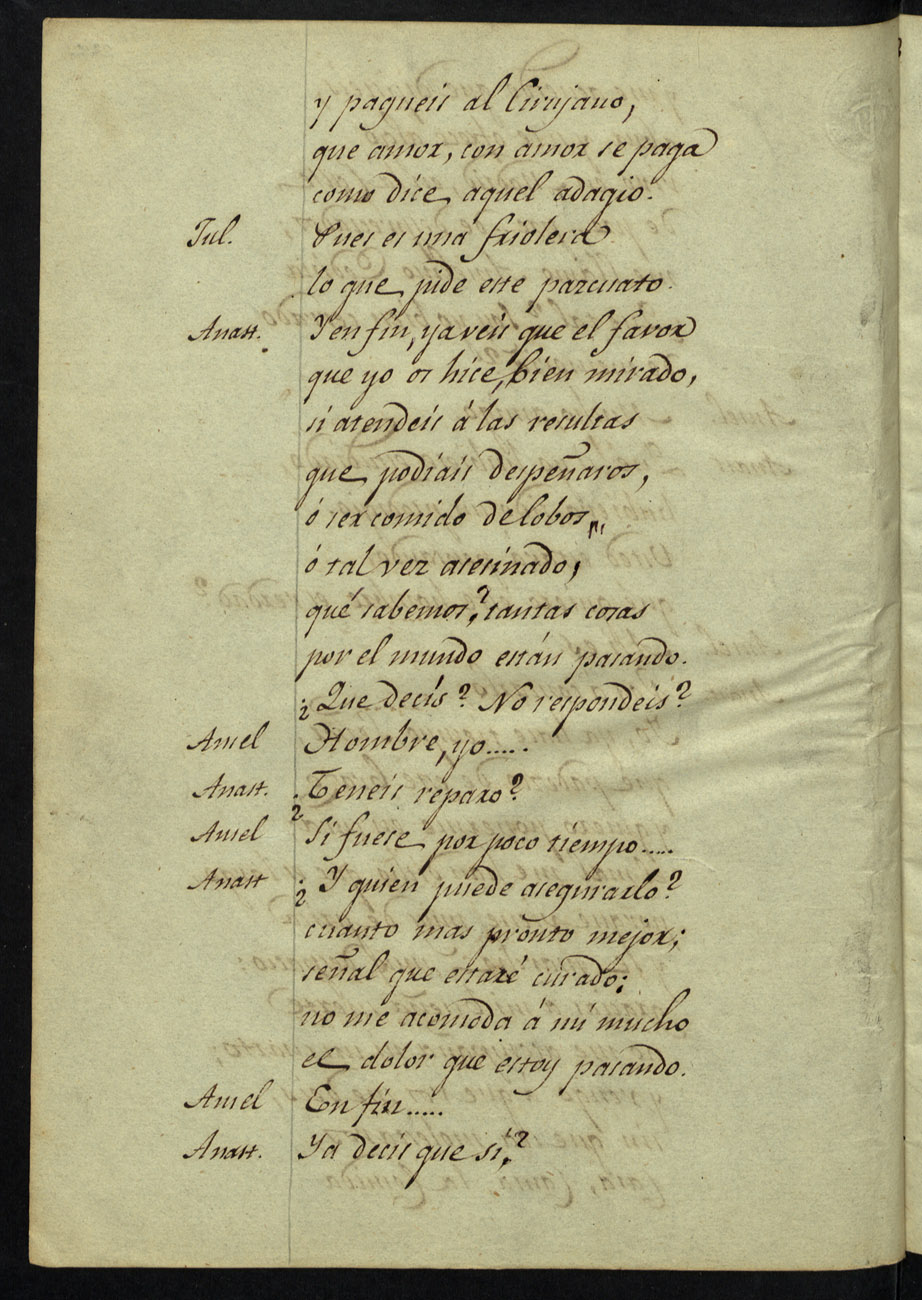 y pagueis al Cirujano,
que amor, con amor se paga
como dice aquel adagio.
Jul. Pues es una friolera
lo que pide este pazcuato.
Anast. Y en fin, ya veis que el favor
que yo os hice, bien mirado,
si atendeis á las resultas
que podíais despeñaros,
ó ser comido de lobos,
ó tal vez asesinado,
qué sabemos? tantas cosas
por el mundo están pasando.
¿Que decís? No respondeis?
Ansel Hombre, yo.....
Anast. ¿Teneis reparo?
Ansel Si fuese por poco tiempo.....
Anast ¿Y quien puede asegurarlo?
cuanto mas pronto mejor;
señal que estaré curado;
no me acomoda á mi mucho
el dolor que estoy pasando.
Ansel En fin.....
Anast. Ya decis que sí?